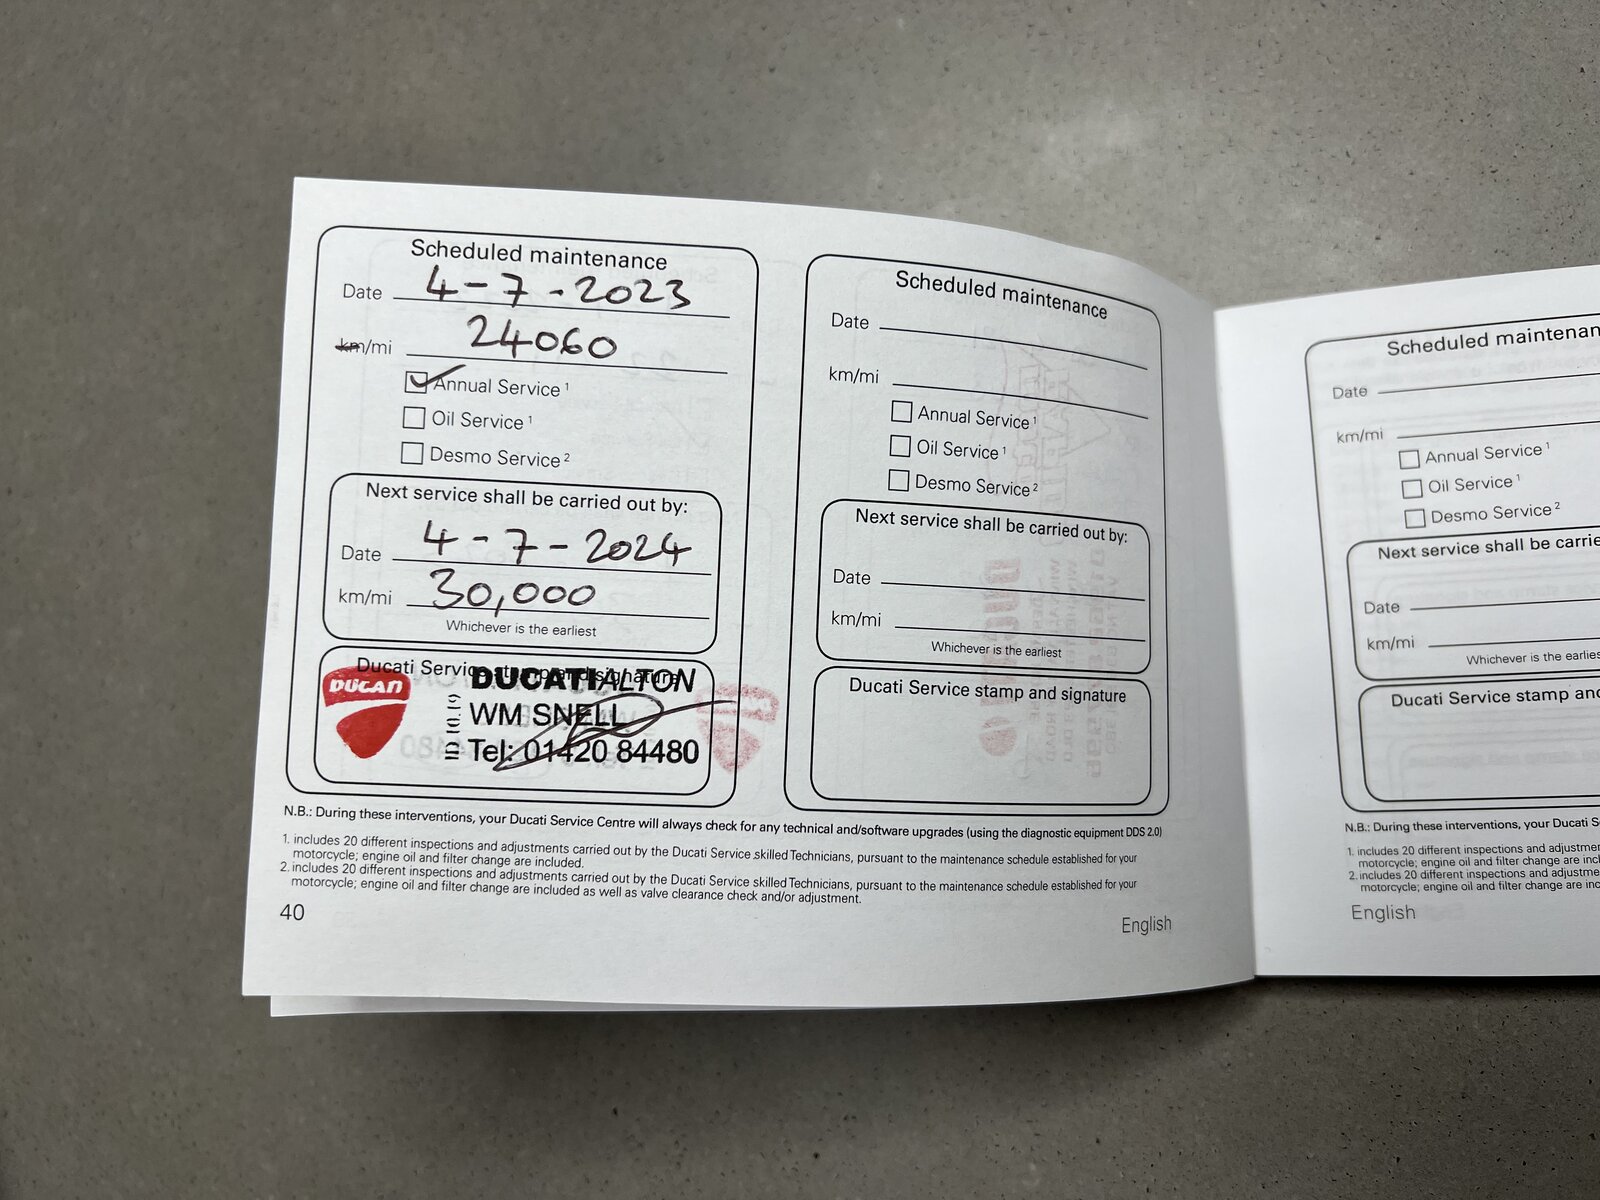 Scheduled maintenance
Date 4-7-2023
km/mi 24060
Annual Service 1
Oil Service 1
Desmo Service 2
Next service shall be carried out by:
Date 4-7-2024
km/mi 30,000
Whichever is the earliest
Ducati Service stamp and signature
DUCATI
DUCATI ALTON
WM SNELL
Tel: 01420 84480
Scheduled maintenance
Date
km/mi
Annual Service 1
Oil Service 1
Desmo Service 2
Next service shall be carried out by:
Date
km/mi
Whichever is the earliest
Ducati Service stamp and signature
N.B.: During these interventions, your Ducati Service Centre will always check for any technical and/software upgrades (using the diagnostic equipment DDS 2.0)
1. includes 20 different inspections and adjustments carried out by the Ducati Service skilled Technicians, pursuant to the maintenance schedule established for your
motorcycle; engine oil and filter change are included.
2. includes 20 different inspections and adjustments carried out by the Ducati Service skilled Technicians, pursuant to the maintenance schedule established for your
motorcycle; engine oil and filter change are included as well as valve clearance check and/or adjustment.
40
English
Scheduled maintenan
Date
km/mi
Annual Service 1
Oil Service 1
Desmo Service 2
Next service shall be carrie
Date
km/mi
Whichever is the earlies
Ducati Service stamp and
N.B.: During these interventions, your Ducati S
1. includes 20 different inspections and adjustme
motorcycle; engine oil and filter change are incl
2. includes 20 different inspections and adjustme
motorcycle; engine oil and filter change are inc
English